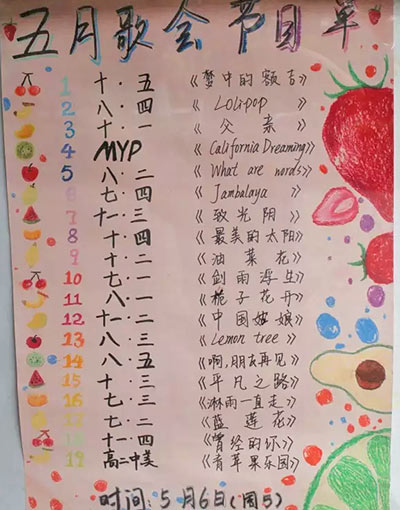 五月歌会节目单
1 十·五 《梦中的额吉》
2 八·四 《Lolipop》
3 十·一 《父亲》
4 MYP 《California Dreaming》
5 八·二 《What are words》
6 七·四 《Jambalaya》
7 十一·三 《致光阴》
8 十·四 《最美的太阳》
9 十·二 《油菜花》
10 七·一 《剑雨浮生》
11 八·一 《栀子花开》
12 十一·二 《中国姑娘》
13 八·三 《Lemon tree》
14 八·五 《啊,朋友再见》
15 十·三 《平凡之路》
16 七·三 《淋雨一直走》
17 七·二 《蓝莲花》
18 十一·四 《曾经的你》
19 高二中美 《青苹果乐园》
时间:5月6日(周5)